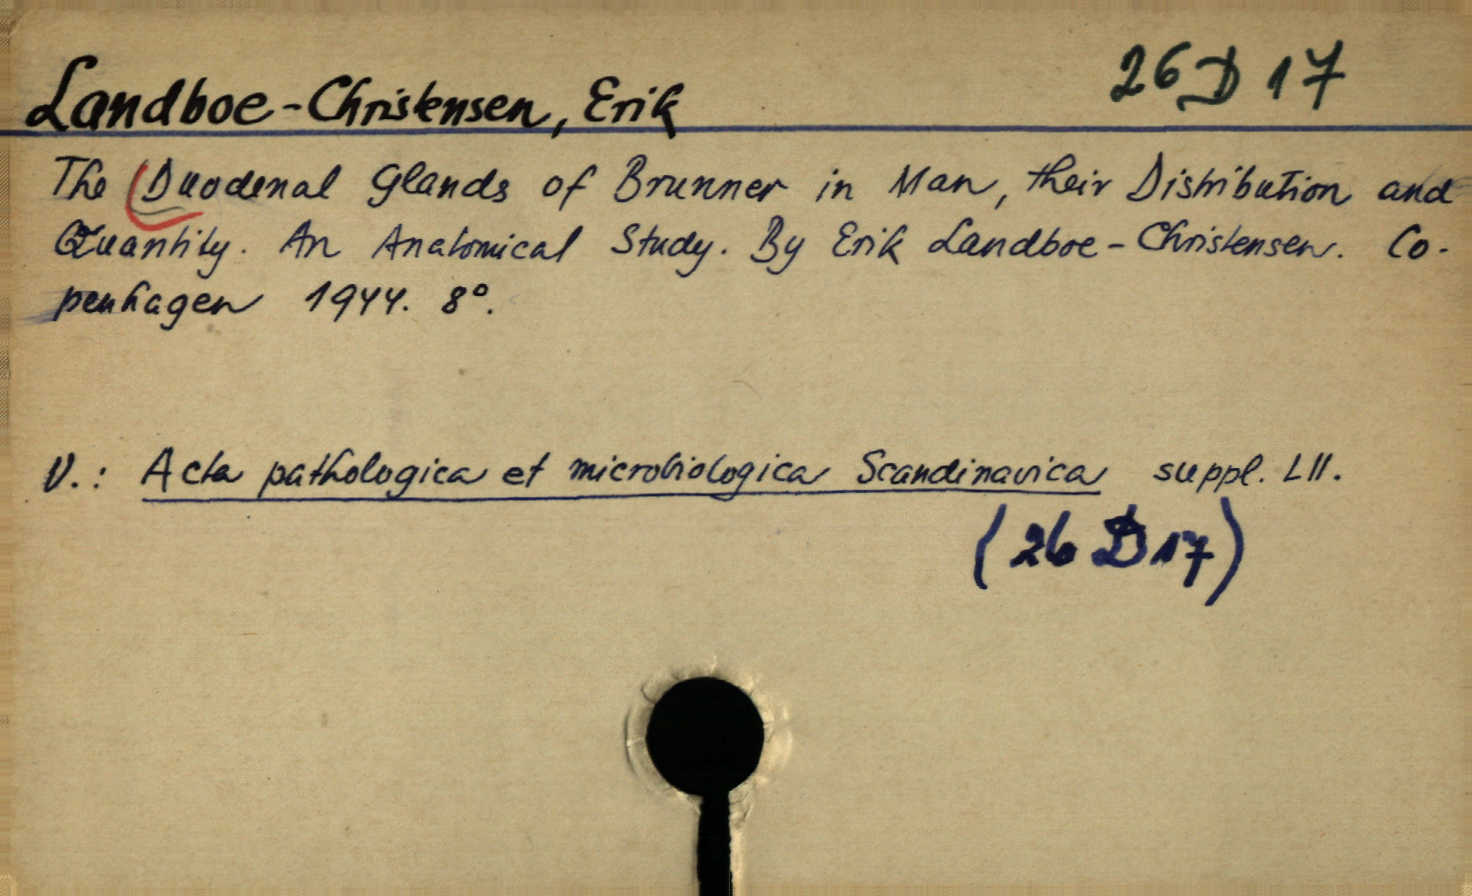 26 D 17
Landboe-Christensen, Erik
The Duodenal Glands of Brunner in Man, their Distribution and
Quantity. An Anatomical Study. By Erik Landboe-Christensen. Co-
penhagen 1944. 8°.
V.: Acta pathologica et microbiologica Scandinavica suppl. LII.
(26 D 17)